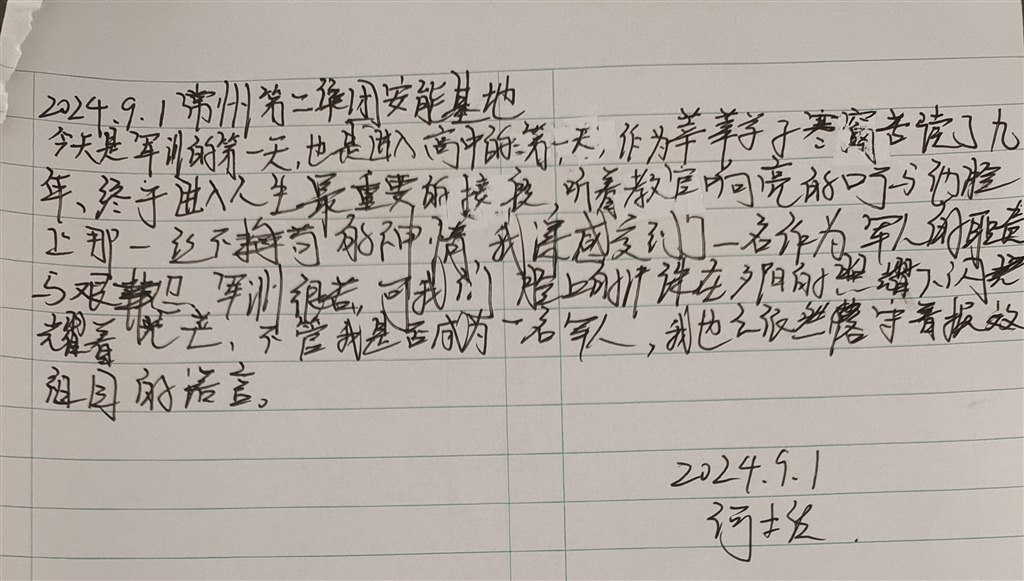 2024.9.1 常州第二集团安能基地
今天是军训的第一天,也是进入高中的第一天,作为莘莘学子寒窗苦读了九
年、终于进入人生最重要的接段,听着教官响亮的口号与的脸
上那一丝不苟的神情,我深感受到了一名作为军人的职责
与艰 军训很苦,可我们脸上的汗珠在夕阳的照耀下闪
耀着光芒,不管我是否成为一名军人,我也会依然 守着报效
祖国的诺言。
2024.9.1